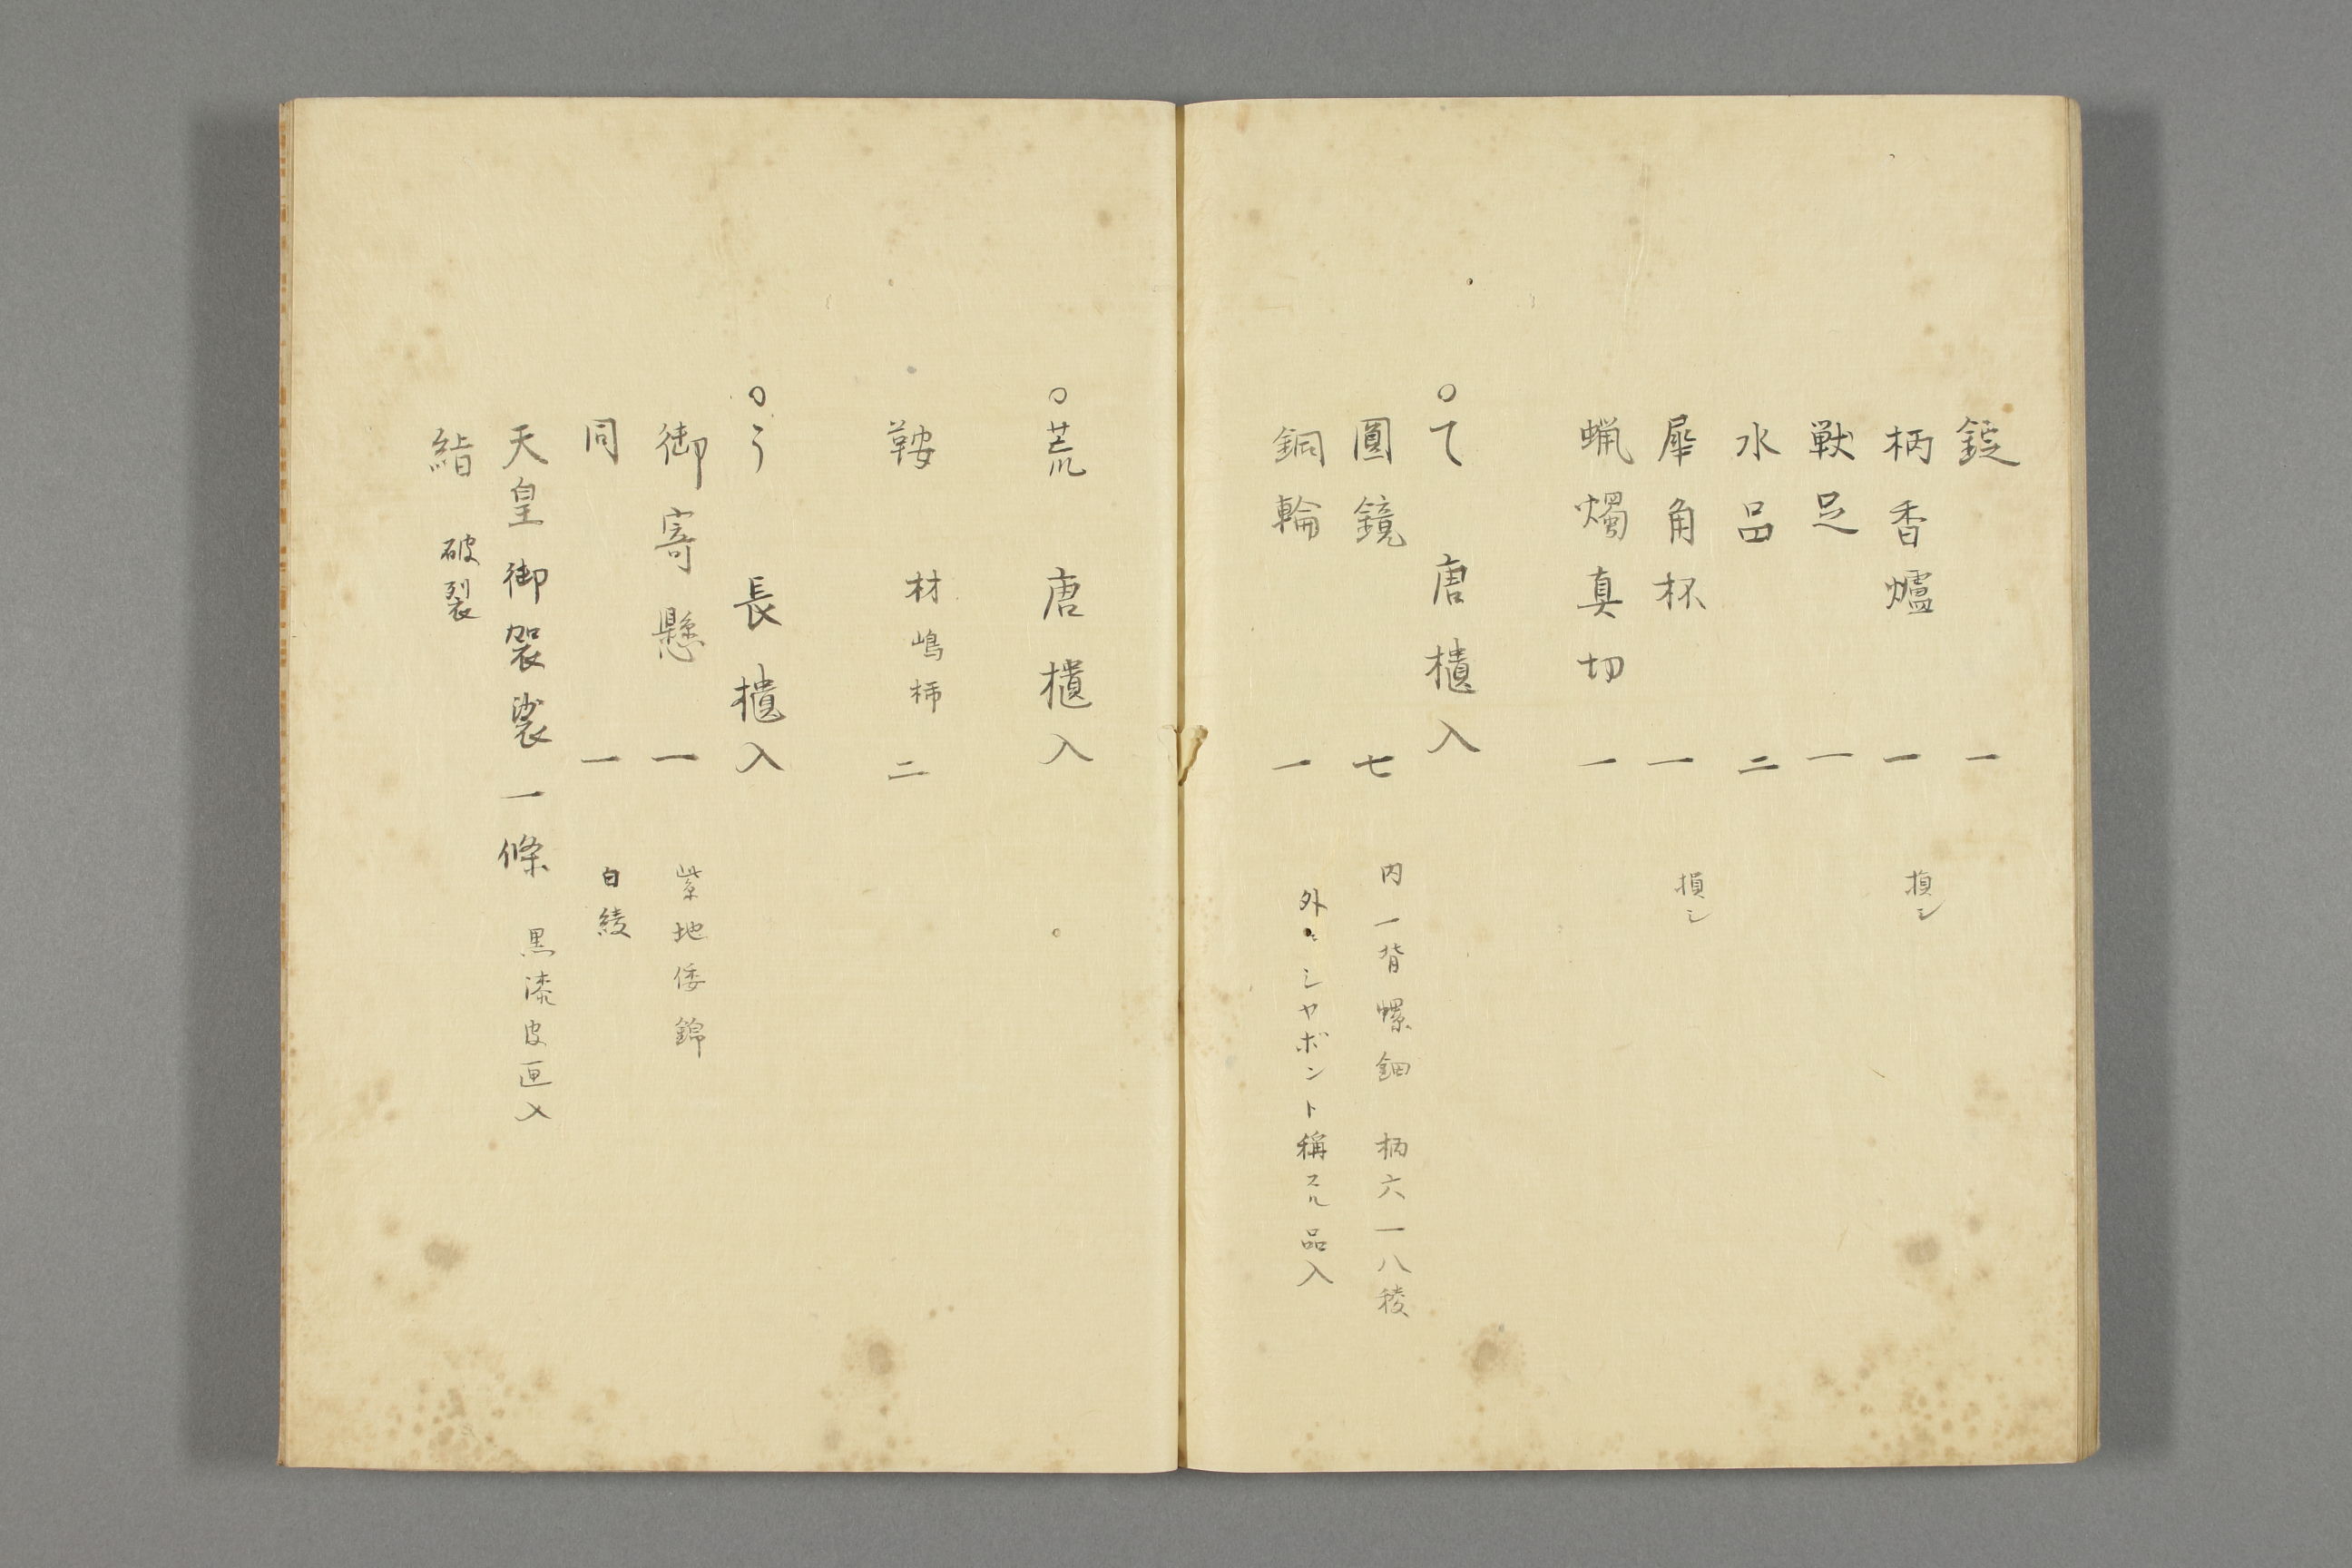 錠 一
柄香爐 一 損シ
獣足 一
水晶 二
犀角杯 一 損シ
蝋燭真切 一
○て 唐櫃入
圓鏡 七 内一背螺鈿 柄六一八稜
銅輪 一 外ニシヤボント稱スル品入
○荒 唐櫃入
鞍 材嶋柹 二
○う 長櫃入
御寄懸 一 紫地倭錦
同 一 白綾
天皇御袈裟一條 黒漆皮匣入
破裂